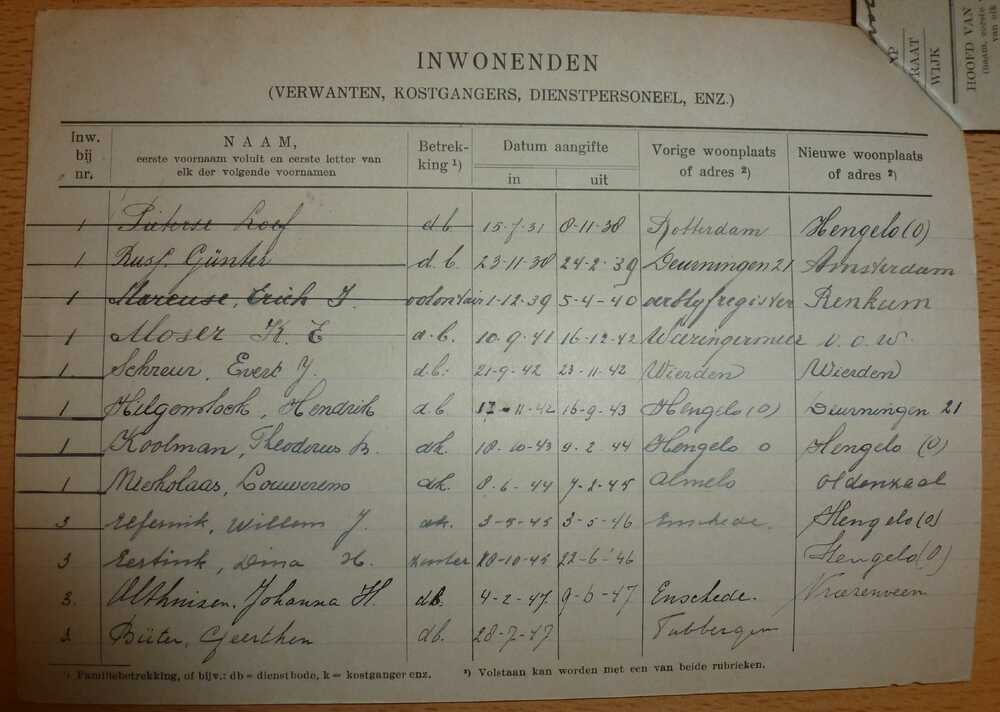 INWONENDEN
(VERWANTEN, KOSTGANGERS, DIENSTPERSONEEL, ENZ.)
Inw. bij nr. NAAM, eerste voornaam voluit en eerste letter van elk der volgende voornamen Betrekking ¹) Datum aangifte in uit Vorige woonplaats of adres ²) Nieuwe woonplaats of adres ²)
1 Pieterse Loef d.b. 15-7-31 8-11-38 Rotterdam Hengelo (O)
1 Günter d.b. 23-11-38 24-2-39 Deurningen 21 Amsterdam
1 Marcuse, Erich J. volontair 1-12-39 5-4-40 verblyfregister Renkum
1 Moser K. E d.b. 10-9-41 16-12-42 Wieringermeer v.o.w.
1. Schreur, Evert J. d.b. 21-9-42 23-11-42 Wierden Wierden
1 Hilgomloch, Hendrik d.b 17-11-42 16-9-43 Hengelo (O) Deurningen 21
1 Koolman, Theodorus B. dk. 18-10-43 9-2-44 Hengelo O Hengelo (O)
1 Nickolaas, Louwerens dk. 8-6-44 7-2-45 Almelo Oldenzaal
3 Elfernik, Willem J. dk. 3-5-45 3-5-46 Enschede. Hengelo (O)
3 Eertink, Dina H. 28-10-45 22-6-46 Hengelo (O)
3. Olthuisen, Johanna H. db 4-2-47. 9-6-47 Enschede. Vriezenveen
3 Büter, Geerthen db. 28-7-47 Tubbergen
¹) Familiebetrekking, of bijv.: db = dienstbode, k = kostganger enz. ²) Volstaan kan worden met een van beide rubrieken.
RAAT
WIJK
HOOFD VAN